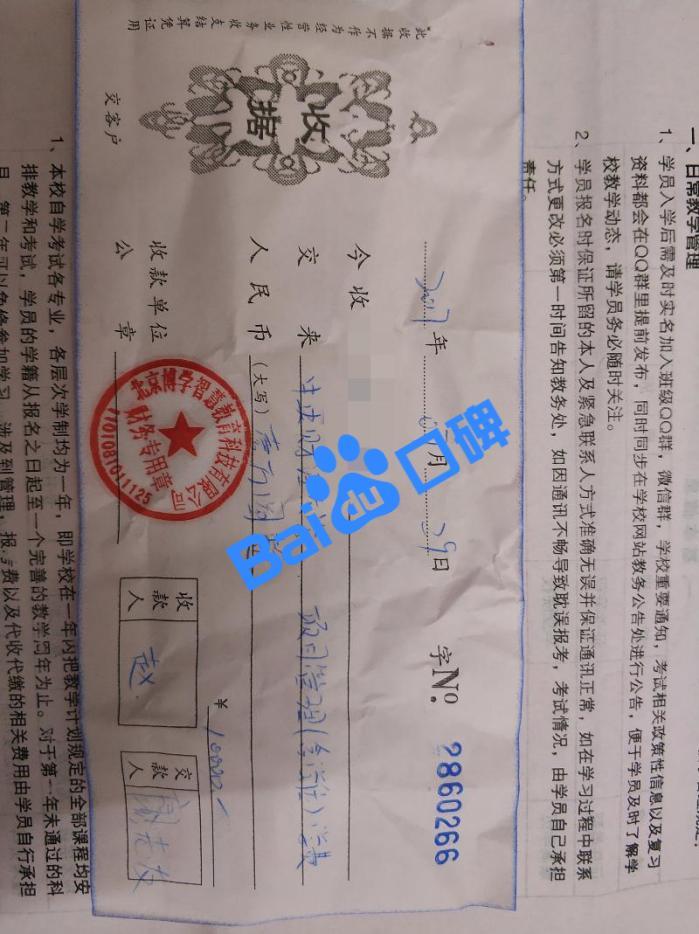 一、日常教学管理
1、学员入学后需及时实名加入班级QQ群，微信群，学校重要通知，考试相关政策性信息以及复习
资料都会在QQ群里提前发布，同时同步在学校网站教务公告处进行公告，便于学员及时了解学
校教学动态，请学员务必随时关注。
2、学员报名时保证所留的本人及紧急联系人方式准确无误并保证通讯正常，如在学习过程中联系
方式更改必须第一时间告知教务处，如因通讯不畅导致耽误报考，考试情况，由学员自己承担
责任。
收据
2017年 月29日 字No. 2860266
今收
交来 中央财 项目管理(含学位)学费
人民币(大写) ¥10000-
收款单位
公章
收款人 赵
交款人
交客户
此收据不作为经营性业务收支结算凭证用
北京博学智慧教育科技有限公司
财务专用章
1101081011125
Bai口碑
1、本校自学考试各专业，各层次学制均为一年，即学校在一年内把教学计划规定的全部课程均安
排教学和考试，学员的学籍从报名之日起至一个完善的教学周年为止。对于第一年未通过的科
目，第二年可以免修参加学习，涉及到管理，报 费以及代收代缴的相关费用由学员自行承担